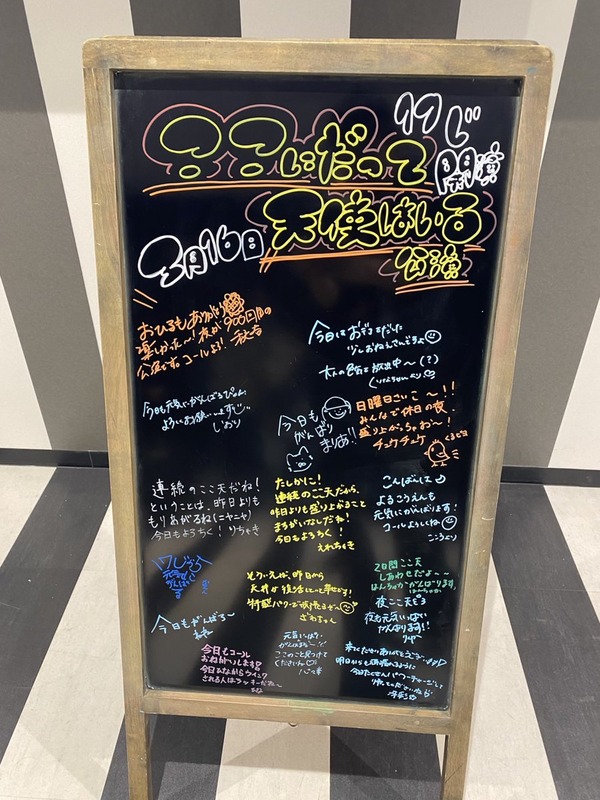 17じ
開演
ここにだって
天使はいる
公演
3月16日
おひるもありがとう
楽しかった〜!夜が900回目の
公演です。コールよろ!
今日は
少しおねえさん
大人の色気放出中〜(?)
今日も元気にがんばるぴょん!
よろしくお願いします
しおり
今日も
がんばり
まりあ!!
日曜日さいこ〜!!
みんなで休日の夜、
盛り上がっちゃお〜!
チュケチュケ
くるぴよ
連続のここ天だね!
ということは、昨日よりも
もりあがるね(ニヤニヤ)
今日もようちく!りちゃき
たしかに!
連続のここ天だから、
昨日よりも盛り上がること
まちがいなしだね!
今日もようちく!
えれちゃき
こんばんは
よるこうえんも
元気にがんばります!
コールよろしくね
こうより
17じから
元気に
がんばる
もういえば、昨日から
天井が復活して幸せです!
特製パワーで頑張るぞ〜
ざわちゃん
2日間ここ天
しあわせだよ〜
ほんちゃかがんばります。
夜ここ天どう
夜も元気いっぱい
がんばります!!
りゆ
今日もがんばろ〜
元気いっぱい
がんばるぞ〜
ここのこと見つけて
くださいね
心々華
今日もコール
おねがいします
今日ひなからウインク
される人はラッキーだね〜
ひな
来てくださりありがとうございます
明日からも頑張れるように
今日たくさんパワーチャージして
帰ってくださいね